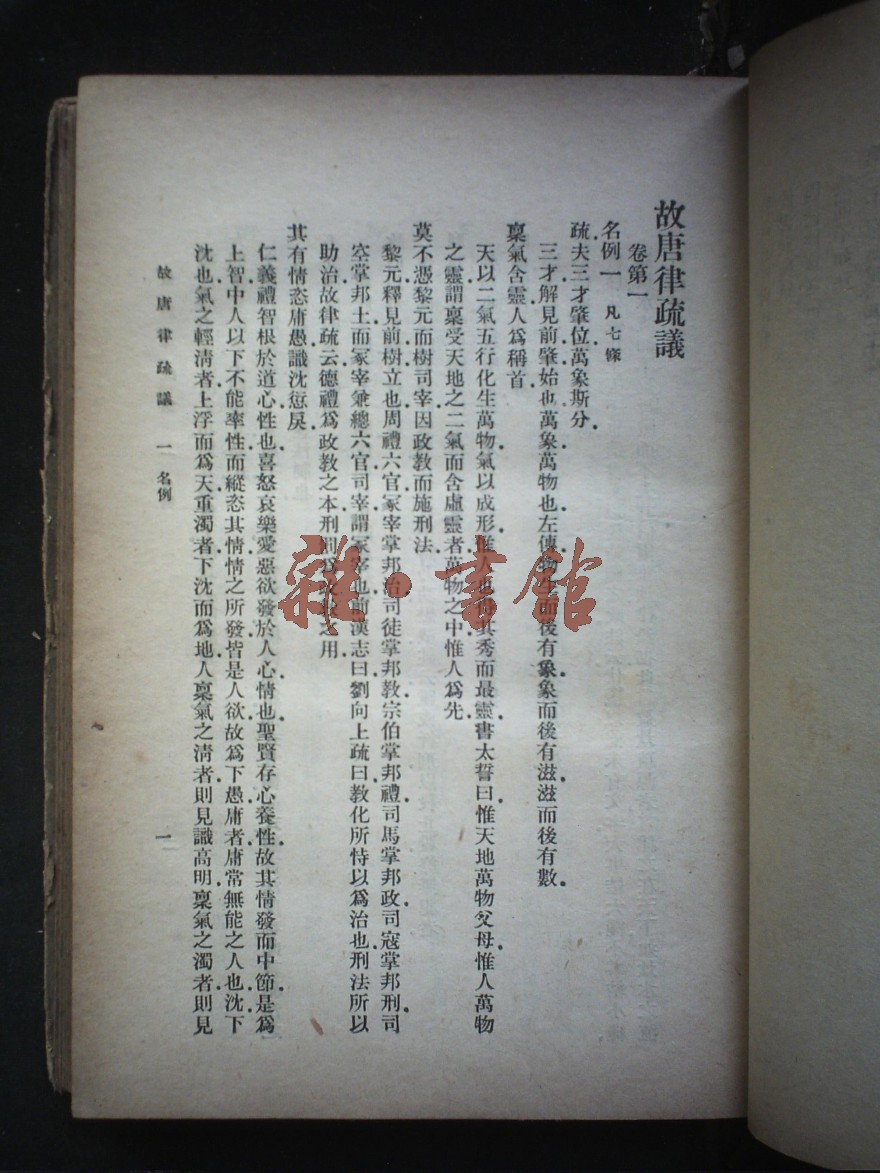 故唐律疏議
卷第一
名例一 凡七條
疏夫三才肇位萬象斯分.
三才解見前肇始也.萬象萬物也.左傳物生而後有象.象而後有滋.滋而後有數.
稟氣含靈人爲稱首.
天以二氣五行化生萬物氣以成形.惟人也得其秀而最靈.書太誓曰.惟天地萬物父母.惟人萬物
之靈謂稟受天地之二氣而含虛靈者.萬物之中惟人爲先.
莫不憑黎元而樹司宰.因政教而施刑法.
黎元釋見前.樹立也.周禮六官.冢宰掌邦治.司徒掌邦教.宗伯掌邦禮.司馬掌邦政.司寇掌邦刑.司
空掌邦土.而冢宰兼總六官.司宰謂冢宰也.前漢志曰.劉向上疏曰.教化所恃以爲治也.刑法所以
助治.故律疏云德禮爲政教之本.刑罰爲政教之用.
其有情恣庸愚識沈愆戾.
仁義禮智根於道心性也.喜怒哀樂愛惡欲發於人心情也.聖賢存心養性.故其情發而中節.是爲
上智.中人以下不能率性而縱恣其情.情之所發皆是人欲.故爲下愚.庸者.庸常無能之人也.沈下
沈也.氣之輕清者上浮而爲天.重濁者下沈而爲地.人稟氣之清者.則見識高明.稟氣之濁者.則見
故唐律疏議 一 名例 一
雜·書館